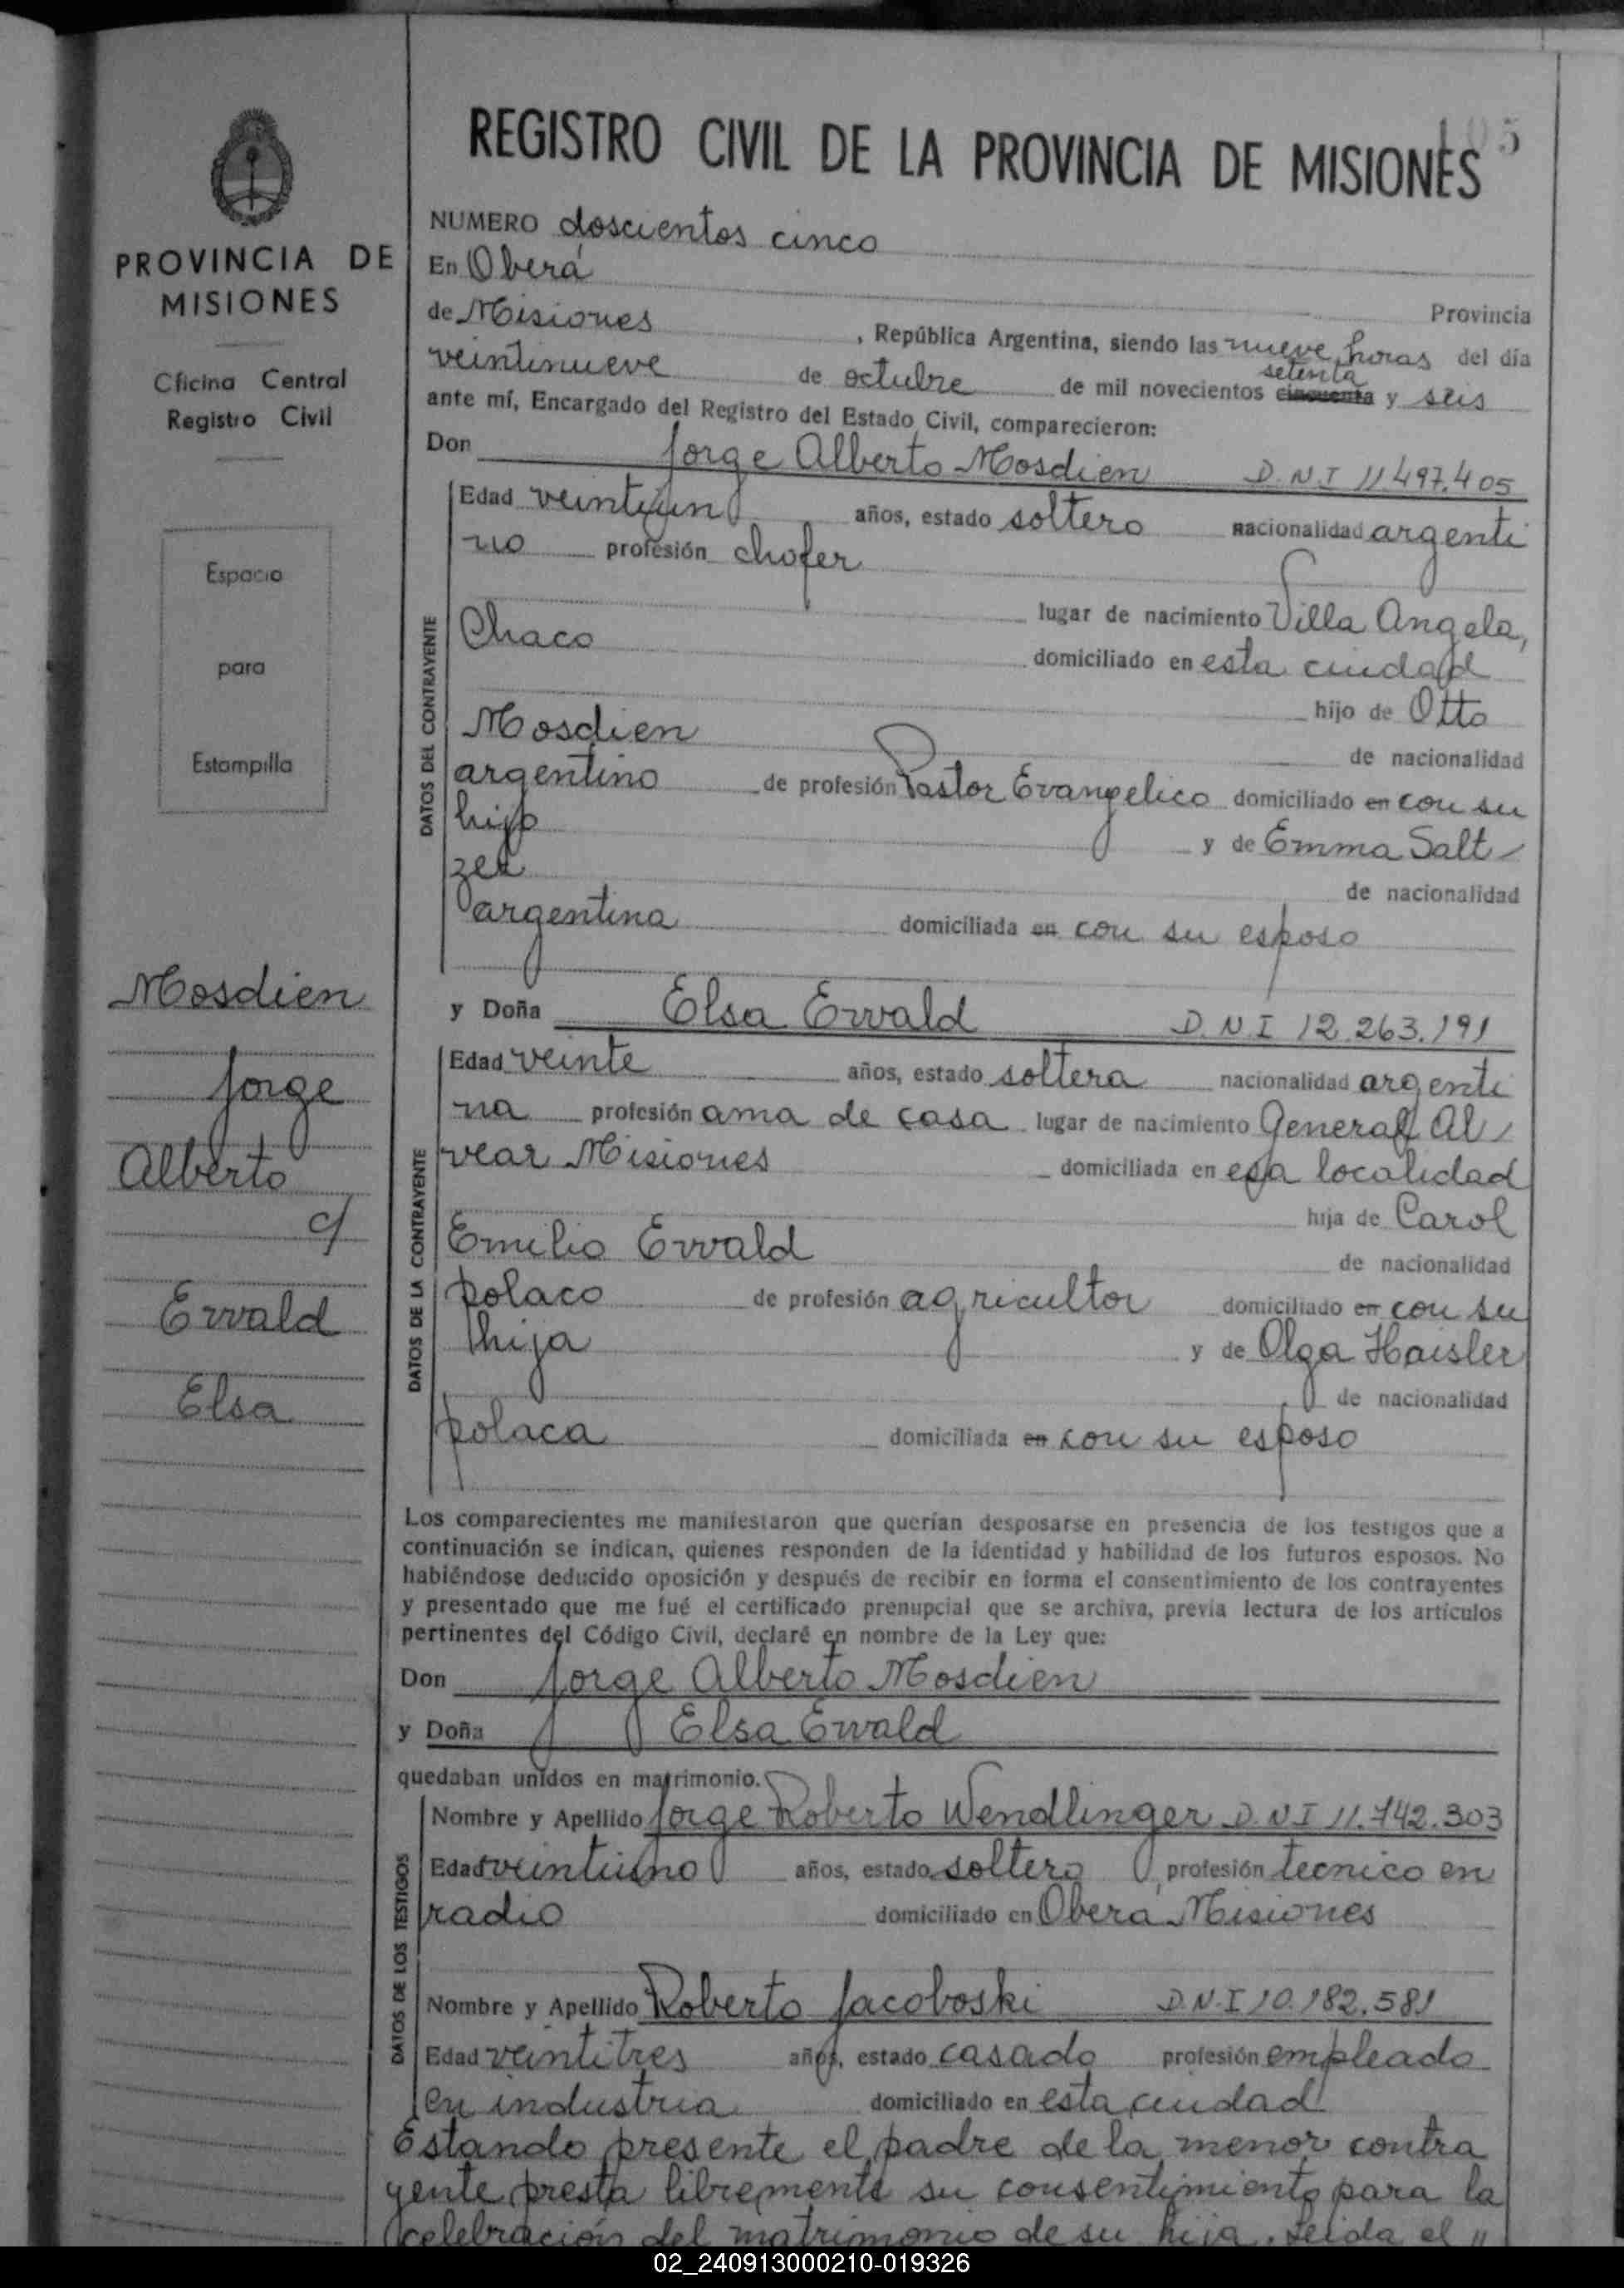 105
REGISTRO CIVIL DE LA PROVINCIA DE MISIONES
PROVINCIA DE
MISIONES
Oficina Central
Registro Civil
Espacio
para
Estampilla
Mosdien
Jorge
Alberto
c/
Ewald
Elsa
NUMERO doscientos cinco
En Oberá
Provincia
de Misiones, República Argentina, siendo las nueve horas del día
veintinueve de octubre de mil novecientos cincuenta setenta y seis
ante mí, Encargado del Registro del Estado Civil, comparecieron:
Don Jorge Alberto Mosdien D.N.I 11.497.405
DATOS DEL CONTRAYENTE
Edad veintiún años, estado soltero nacionalidad argenti
no profesión chofer
lugar de nacimiento Villa Angela,
Chaco domiciliado en esta ciudad
hijo de Otto
Mosdien de nacionalidad
argentino de profesión Pastor Evangelico domiciliado en con su
hijo y de Emma Salt
zer de nacionalidad
argentina domiciliada en con su esposo
y Doña Elsa Ewald D.N.I 12.263.191
DATOS DE LA CONTRAYENTE
Edad veinte años, estado soltera nacionalidad argenti
na profesión ama de casa lugar de nacimiento General Al
vear Misiones domiciliada en esa localidad
hija de Carol
Emilio Ewald de nacionalidad
polaco de profesión agricultor domiciliado en con su
hija y de Olga Haisler
de nacionalidad
polaca domiciliada en con su esposo
Los comparecientes me manifestaron que querían desposarse en presencia de los testigos que a
continuación se indican, quienes responden de la identidad y habilidad de los futuros esposos. No
habiéndose deducido oposición y después de recibir en forma el consentimiento de los contrayentes
y presentado que me fué el certificado prenupcial que se archiva, previa lectura de los artículos
pertinentes del Código Civil, declaré en nombre de la Ley que:
Don Jorge Alberto Mosdien
y Doña Elsa Ewald
quedaban unidos en matrimonio.
DATOS DE LOS TESTIGOS
Nombre y Apellido Jorge Roberto Wendlinger D.N.I 11.742.303
Edad veintiuno años, estado soltero, profesión tecnico en
radio domiciliado en Oberá Misiones
Nombre y Apellido Roberto Jacoboski D.N.I 10.182.581
Edad veintitres años, estado casado profesión empleado
en industria domiciliado en esta ciudad
Estando presente el padre de la menor contra
yente presta libremente su consentimiento para la
celebración del matrimonio de su hija. Leida el
02_240913000210-019326